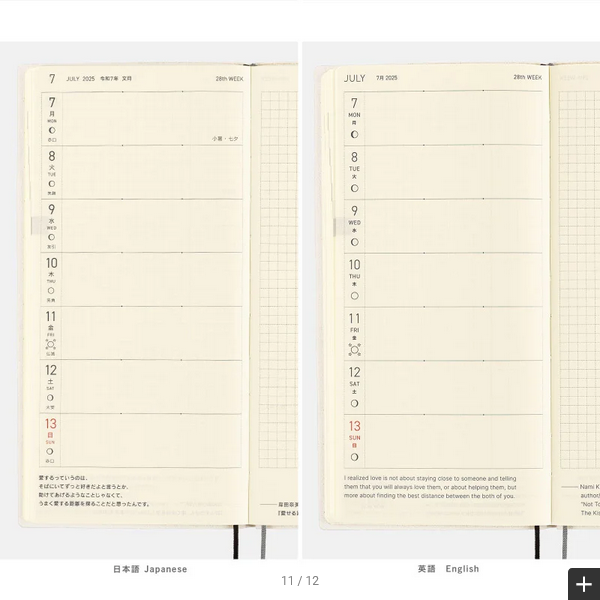 7 JULY 2025 令和7年 文月 28th WEEK
7
月
MON
赤口
小暑・七夕
8
火
TUE
先勝
9
水
WED
友引
10
木
THU
先負
11
金
FRI
仏滅
12
土
SAT
大安
13
日
SUN
赤口
愛するっていうのは、
そばにいてずっと好きだよと言うとか、
助けてあげるようなことじゃなくて、
うまく愛する距離を探ることだと思ったんです。
JULY 7月 2025 28th WEEK
7
MON
月
8
TUE
火
9
WED
水
10
THU
木
11
FRI
金
12
SAT
土
13
SUN
日
I realized love is not about staying close to someone and telling
them that you will always love them, or about helping them, but
more about finding the best distance between the both of you.
Nami K
author
"Not To
The Kis
日本語 Japanese
英語 English
11 / 12